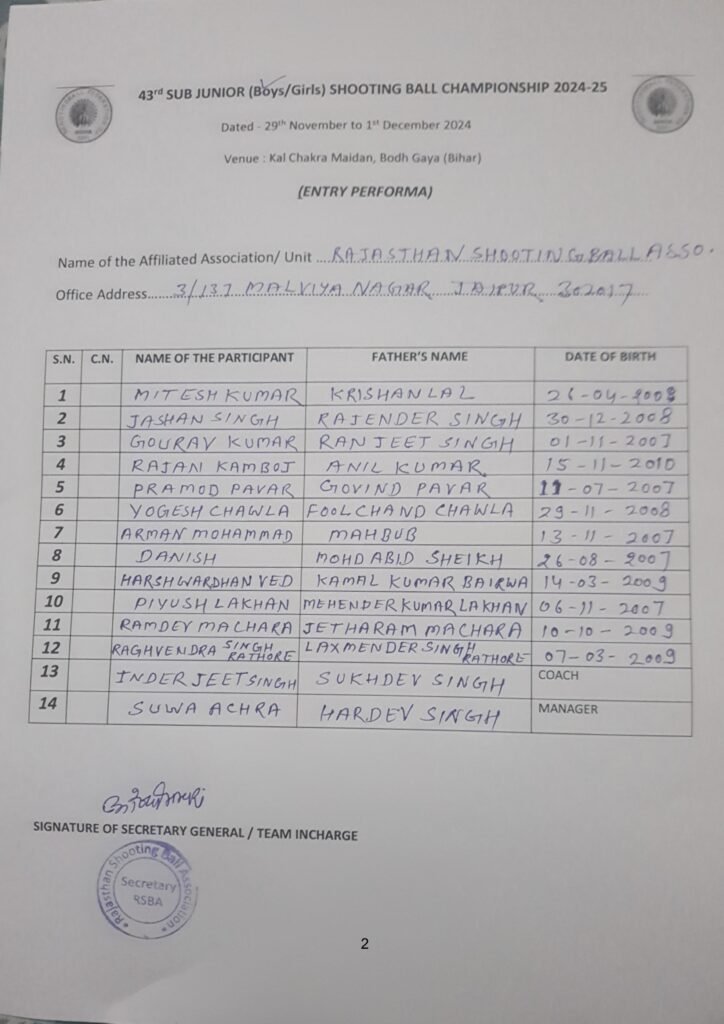 43rd SUB JUNIOR (Boys/Girls) SHOOTING BALL CHAMPIONSHIP 2024-25
Dated - 29th November to 1st December 2024
Venue : Kal Chakra Maidan, Bodh Gaya (Bihar)
(ENTRY PERFORMA)
Name of the Affiliated Association/ Unit ....RAJASTHAN SHOOTINGBALL ASSO.
Office Address......3/137 MALVIYA NAGAR JAIPUR 302017
S.N. C.N. NAME OF THE PARTICIPANT FATHER'S NAME DATE OF BIRTH
1 MITESH KUMAR KRISHAN LAL 26-04-2008
2 JASHAN SINGH RAJENDER SINGH 30-12-2008
3 GOURAV KUMAR RANJEET SINGH 01-11-2007
4 RAJAN KAMBOJ ANIL KUMAR 15-11-2010
5 PRAMOD PAVAR GOVIND PAVAR 11-07-2007
6 YOGESH CHAWLA FOOLCHAND CHAWLA 29-11-2008
7 ARMAN MOHAMMAD MAHBUB 13-11-2007
8 DANISH MOHD ABID SHEIKH 26-08-2007
9 HARSHWARDHAN VED KAMAL KUMAR BAIRWA 14-03-2009
10 PIYUSH LAKHAN MEHENDER KUMAR LAKHAN 06-11-2007
11 RAMDEV MACHARA JETHARAM MACHARA 10-10-2009
12 RAGHVENDRA SINGH RATHORE LAXMENDER SINGH RATHORE 07-03-2009
13 INDERJEET SINGH SUKHDEV SINGH COACH
14 SUWA ACHRA HARDEV SINGH MANAGER
SIGNATURE OF SECRETARY GENERAL / TEAM INCHARGE
Rajasthan Shooting Ball Association
Secretary
RSBA
2